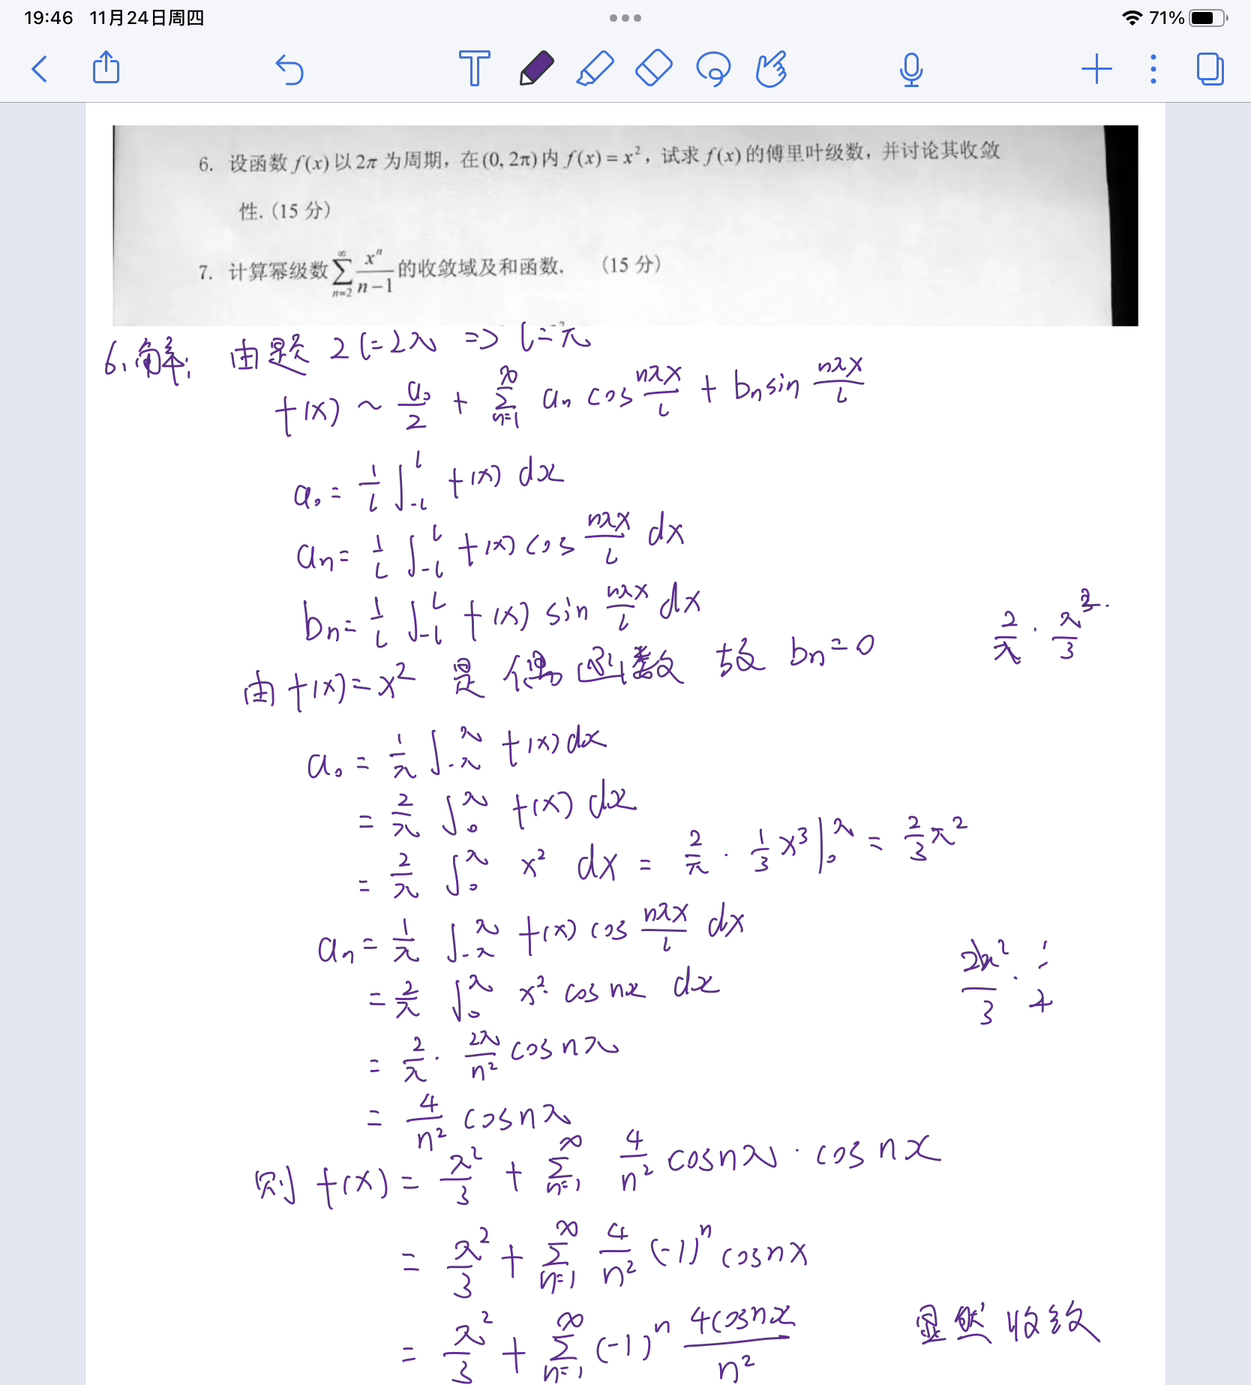 19:46 11月24日周四
71%
6. 设函数 f(x) 以 2π 为周期，在 (0, 2π) 内 f(x) = x²，试求 f(x) 的傅里叶级数，并讨论其收敛
性.（15 分）
7. 计算幂级数 ∑_{n=2}^{∞} x^n/(n−1) 的收敛域及和函数. （15 分）
6、解：由题 2l=2π => l=π
f(x) ~ a₀/2 + ∑_{n=1}^{∞} aₙ cos nπx/l + bₙ sin nπx/l
a₀ = 1/l ∫_{-l}^{l} f(x) dx
aₙ = 1/l ∫_{-l}^{l} f(x) cos nπx/l dx
bₙ = 1/l ∫_{-l}^{l} f(x) sin nπx/l dx
2/π · π³/3
由 f(x)=x² 是偶函数 故 bₙ=0
a₀ = 1/π ∫_{-π}^{π} f(x) dx
= 2/π ∫_0^π f(x) dx
= 2/π ∫_0^π x² dx = 2/π · 1/3 x³ |_0^π = 2/3 π²
aₙ = 1/π ∫_{-π}^{π} f(x) cos nπx/l dx
= 2/π ∫_0^π x² cos nx dx
= 2/π · 2π/n² cos nπ
= 4/n² cos nπ
则 f(x) = π²/3 + ∑_{n=1}^{∞} 4/n² cos nπ · cos nx
= π²/3 + ∑_{n=1}^{∞} 4/n² (-1)^n cos nx
= π²/3 + ∑_{n=1}^{∞} (-1)^n 4cos nx/n² 显然收敛